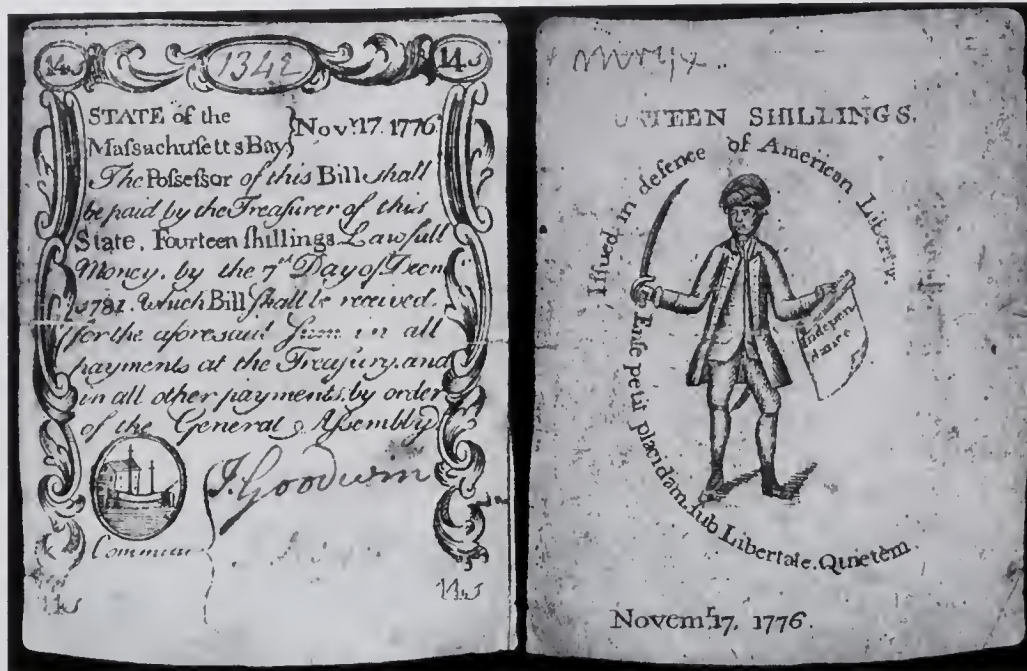 14s 1342 14s
STATE of the
Maſsachuſetts Bay } Novr. 17. 1776
The Poſseſsor of this Bill ſhall
be paid by the Treaſurer of this
State, Fourteen ſhillings Lawfull
Money, by the 7th Day of Decm
1781. which Bill ſhall be received
for the aforesaid ſum in all
payments at the Treaſury, and
in all other payments, by order
of the General Aſsembly
J. Goodwin
Commtee
14s 14s
SHILLINGS.
Iſſued in defence of American Liberty.
Enſe petit placidam, ſub Libertate, Quietem.
Indepen
dance
Novemr. 17. 1776.